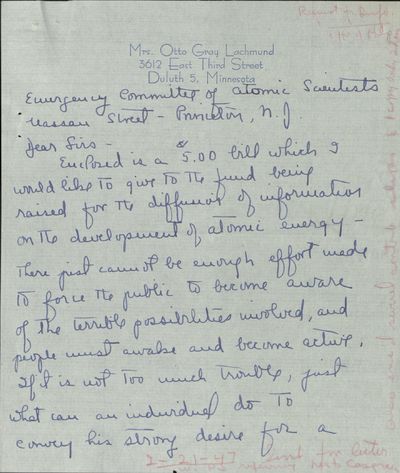 Mrs. Otto Gray Lachmund
3612 East Third Street
Duluth 5, Minnesota
Emergency Committee of Atomic Scientists
Nassau Street - Princeton, N.J.
Dear Sirs -
Enclosed is a $5.00 bill which I
would like to give to the fund being
raised for the diffusion of information
on the development of atomic energy -
There just cannot be enough effort made
to force the public to become aware
of the terrible possibilities involved, and
people must awake and become active.
If it is not too much trouble, just
what can an individual do to
convey his strong desire for a
2-21-47